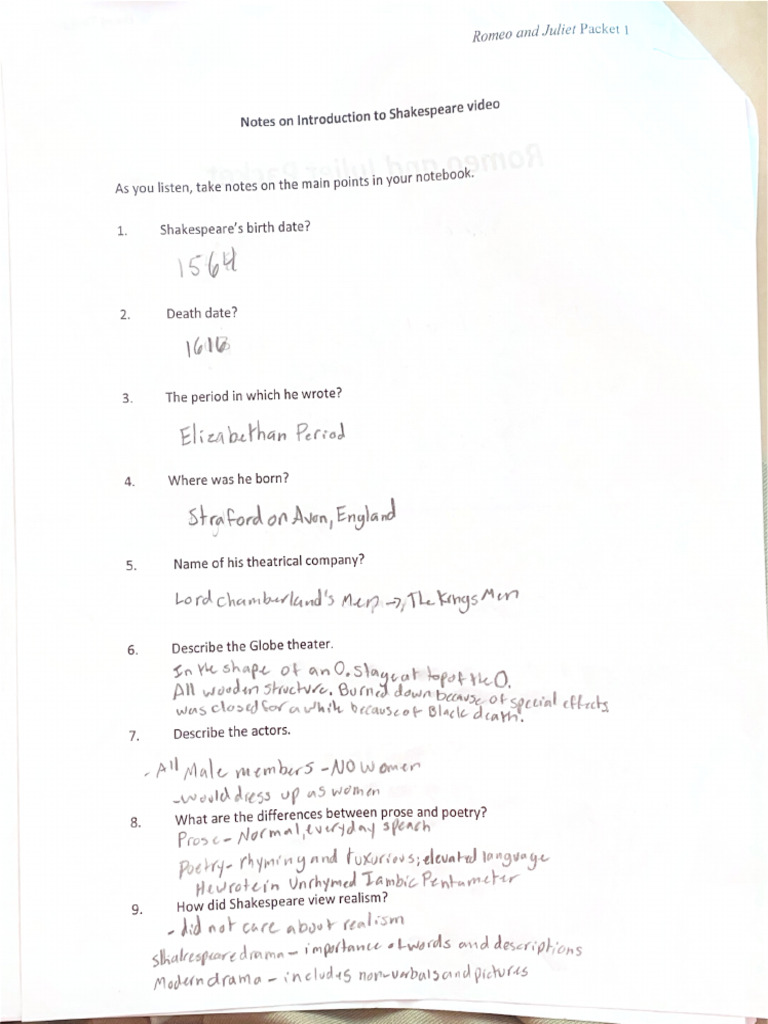 Romeo and Juliet Packet 1
Notes on Introduction to Shakespeare video
As you listen, take notes on the main points in your notebook.
1. Shakespeare's birth date?
1564
2. Death date?
1616
3. The period in which he wrote?
Elizabethan Period
4. Where was he born?
Straford on Avon, England
5. Name of his theatrical company?
Lord Chamberland's Men →, The Kings Men
6. Describe the Globe theater.
In the shape of an O. Stage at top of the O.
All wooden structure. Burned down because of special effects
was closed for a while because of Black death.
7. Describe the actors.
- All Male members - NO women
- would dress up as women
8. What are the differences between prose and poetry?
Prose - Normal, everyday speach
Poetry - rhyming and luxurious; elevated language
He wrote in Unrhymed Iambic Pentameter
9. How did Shakespeare view realism?
- did not care about realism
Shakespeare drama - importance of words and descriptions
Modern drama - includes non-verbals and pictures